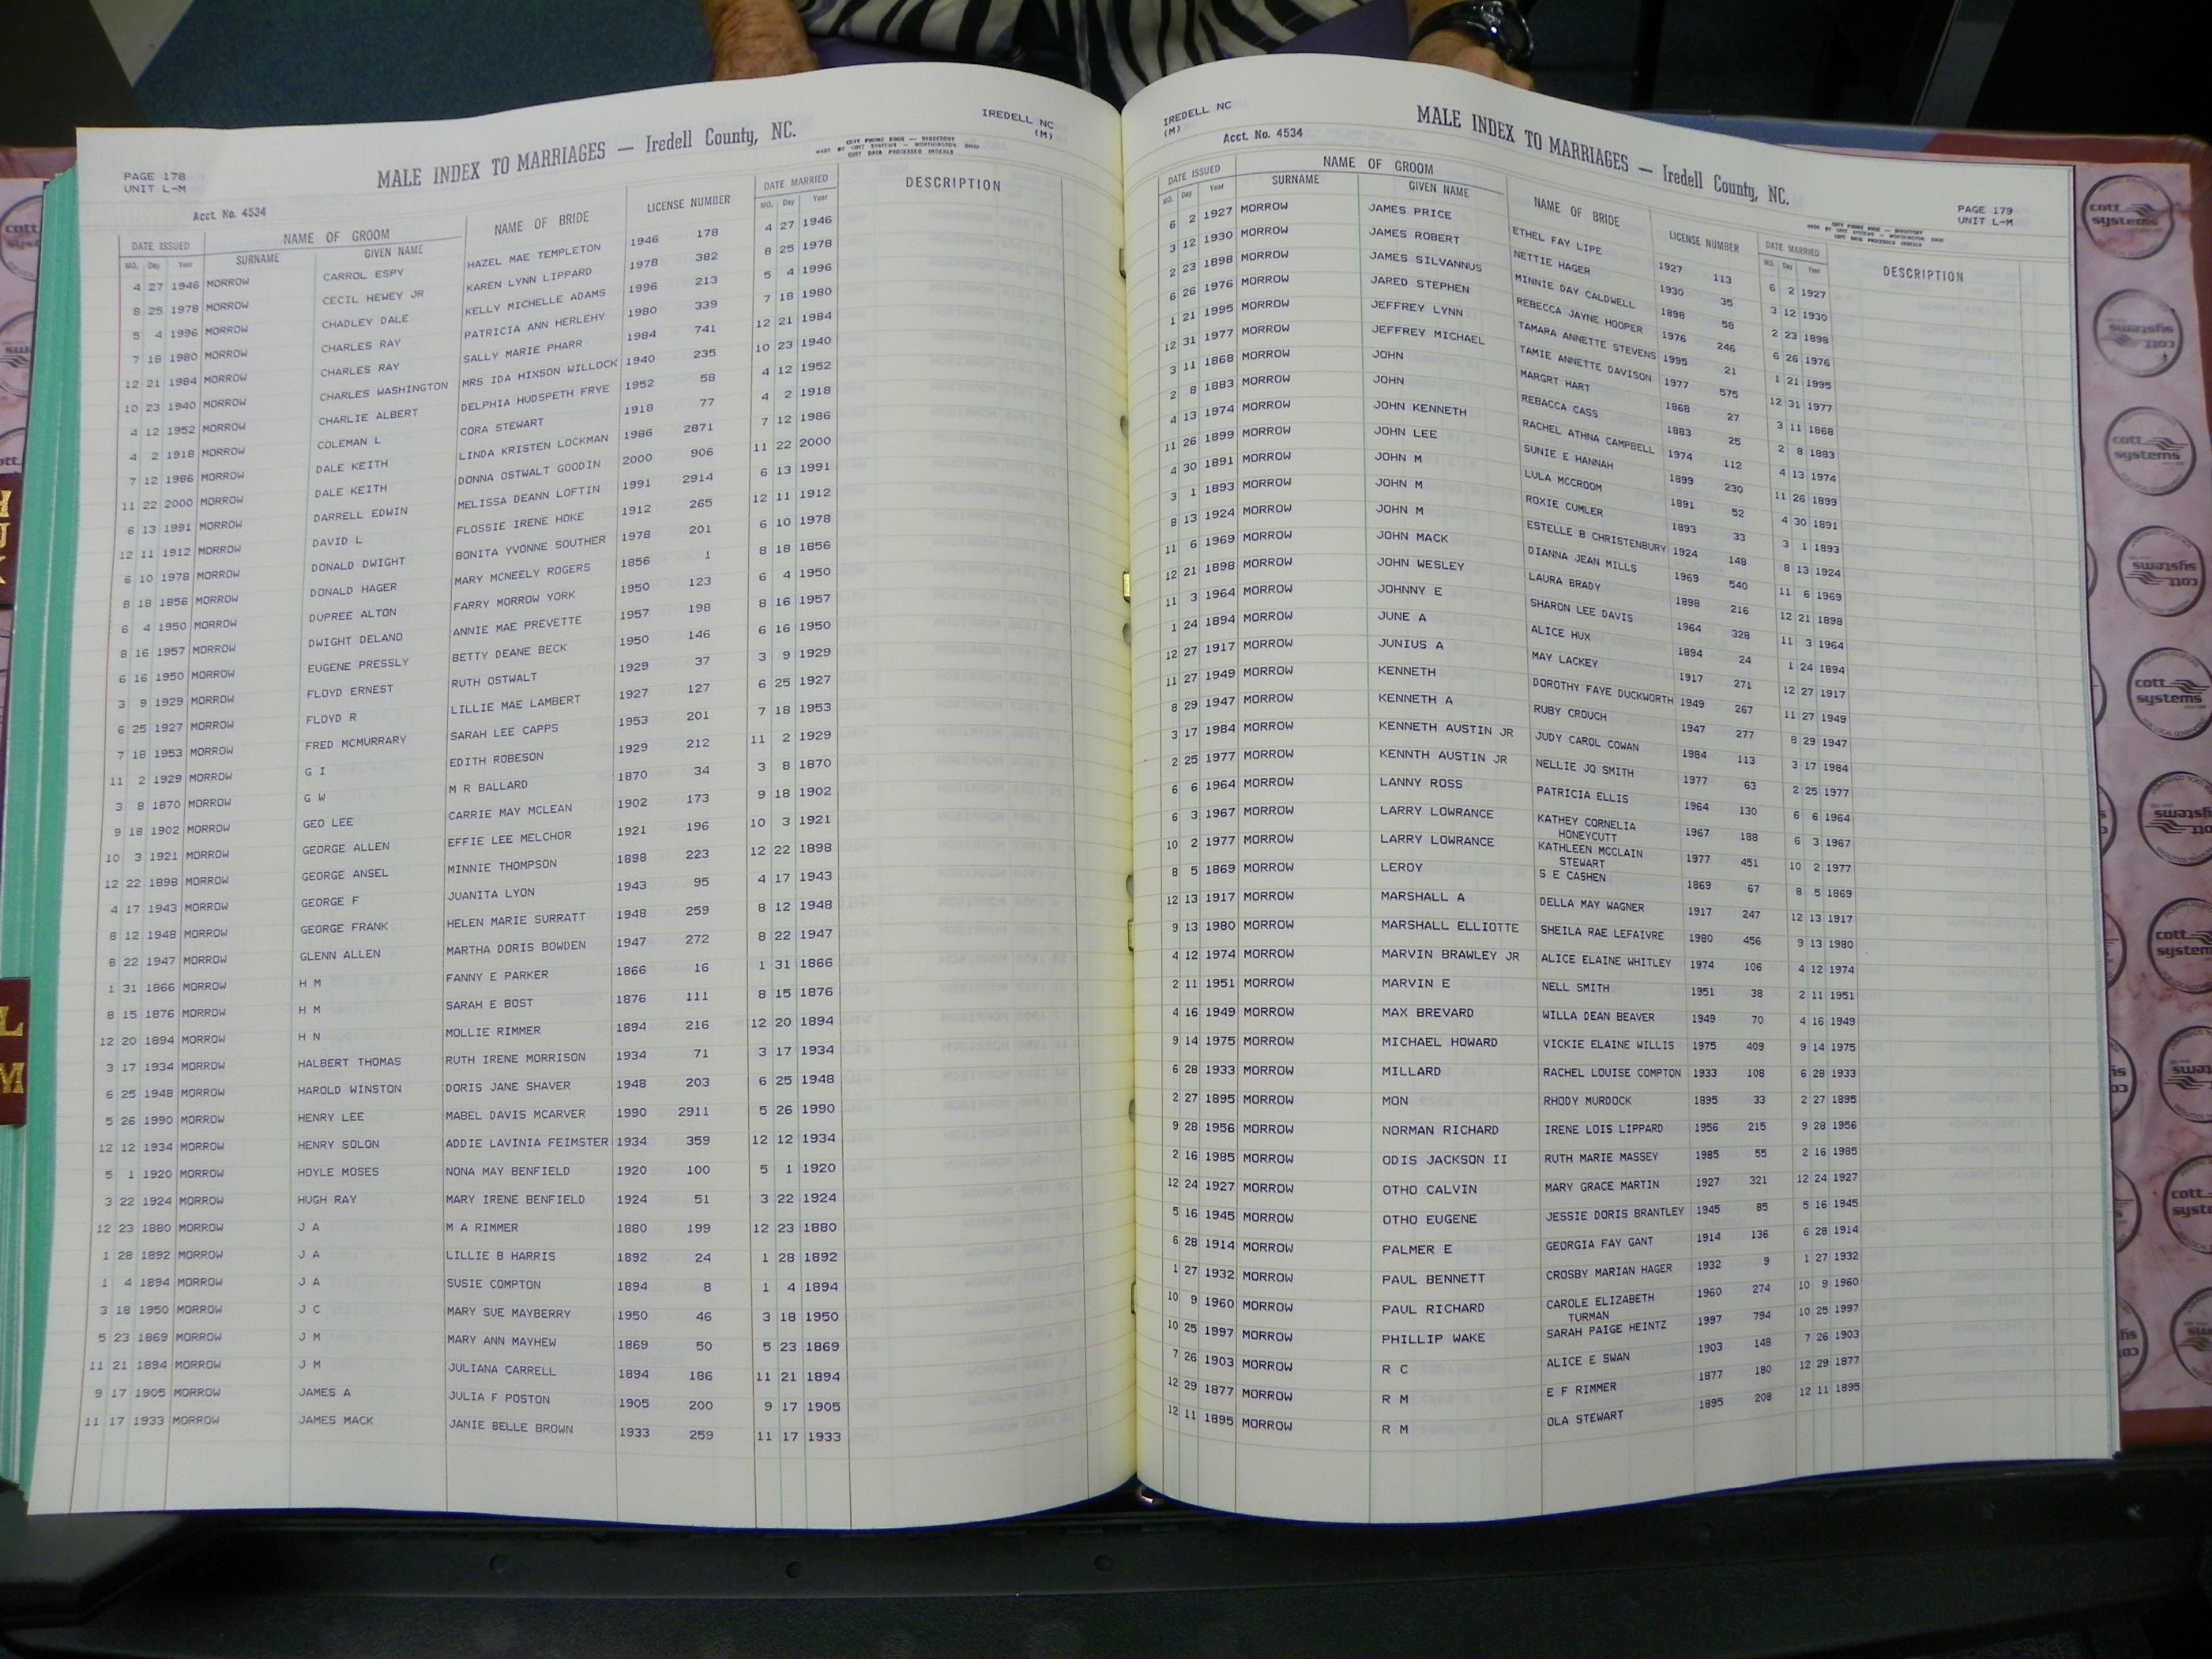 PAGE 178
UNIT L-M
MALE INDEX TO MARRIAGES — Iredell County, NC.
COTT PHONE BOOK — DIRECTORY
MADE BY COTT SYSTEMS — WORTHINGTON OHIO
COTT DATA PROCESSED INDEXES
IREDELL NC
(M)
Acct. No. 4534
DATE ISSUED NAME OF GROOM NAME OF BRIDE LICENSE NUMBER DATE MARRIED DESCRIPTION
MO. Day Year SURNAME GIVEN NAME MO. Day Year
4 27 1946 MORROW CARROL ESPY HAZEL MAE TEMPLETON 1946 178 4 27 1946
8 25 1978 MORROW CECIL HEWEY JR KAREN LYNN LIPPARD 1978 382 8 25 1978
5 4 1996 MORROW CHADLEY DALE KELLY MICHELLE ADAMS 1996 213 5 4 1996
7 18 1980 MORROW CHARLES RAY PATRICIA ANN HERLEHY 1980 339 7 18 1980
12 21 1984 MORROW CHARLES RAY SALLY MARIE PHARR 1984 741 12 21 1984
10 23 1940 MORROW CHARLES WASHINGTON MRS IDA HIXSON WILLOCK 1940 235 10 23 1940
4 12 1952 MORROW CHARLIE ALBERT DELPHIA HUDSPETH FRYE 1952 58 4 12 1952
4 2 1918 MORROW COLEMAN L CORA STEWART 1918 77 4 2 1918
7 12 1986 MORROW DALE KEITH LINDA KRISTEN LOCKMAN 1986 2871 7 12 1986
11 22 2000 MORROW DALE KEITH DONNA OSTWALT GOODIN 2000 906 11 22 2000
6 13 1991 MORROW DARRELL EDWIN MELISSA DEANN LOFTIN 1991 2914 6 13 1991
12 11 1912 MORROW DAVID L FLOSSIE IRENE HOKE 1912 265 12 11 1912
6 10 1978 MORROW DONALD DWIGHT BONITA YVONNE SOUTHER 1978 201 6 10 1978
8 18 1856 MORROW DONALD HAGER MARY MCNEELY ROGERS 1856 1 8 18 1856
6 4 1950 MORROW DUPREE ALTON FARRY MORROW YORK 1950 123 6 4 1950
8 16 1957 MORROW DWIGHT DELANO ANNIE MAE PREVETTE 1957 198 8 16 1957
6 16 1950 MORROW EUGENE PRESSLY BETTY DEANE BECK 1950 146 6 16 1950
3 9 1929 MORROW FLOYD ERNEST RUTH OSTWALT 1929 37 3 9 1929
6 25 1927 MORROW FLOYD R LILLIE MAE LAMBERT 1927 127 6 25 1927
7 18 1953 MORROW FRED MCMURRARY SARAH LEE CAPPS 1953 201 7 18 1953
11 2 1929 MORROW G I EDITH ROBESON 1929 212 11 2 1929
3 8 1870 MORROW G W M R BALLARD 1870 34 3 8 1870
9 18 1902 MORROW GEO LEE CARRIE MAY MCLEAN 1902 173 9 18 1902
10 3 1921 MORROW GEORGE ALLEN EFFIE LEE MELCHOR 1921 196 10 3 1921
12 22 1898 MORROW GEORGE ANSEL MINNIE THOMPSON 1898 223 12 22 1898
4 17 1943 MORROW GEORGE F JUANITA LYON 1943 95 4 17 1943
8 12 1948 MORROW GEORGE FRANK HELEN MARIE SURRATT 1948 259 8 12 1948
8 22 1947 MORROW GLENN ALLEN MARTHA DORIS BOWDEN 1947 272 8 22 1947
1 31 1866 MORROW H M FANNY E PARKER 1866 16 1 31 1866
8 15 1876 MORROW H M SARAH E BOST 1876 111 8 15 1876
12 20 1894 MORROW H N MOLLIE RIMMER 1894 216 12 20 1894
3 17 1934 MORROW HALBERT THOMAS RUTH IRENE MORRISON 1934 71 3 17 1934
6 25 1948 MORROW HAROLD WINSTON DORIS JANE SHAVER 1948 203 6 25 1948
5 26 1990 MORROW HENRY LEE MABEL DAVIS MCARVER 1990 2911 5 26 1990
12 12 1934 MORROW HENRY SOLON ADDIE LAVINIA FEIMSTER 1934 359 12 12 1934
5 1 1920 MORROW HOYLE MOSES NONA MAY BENFIELD 1920 100 5 1 1920
3 22 1924 MORROW HUGH RAY MARY IRENE BENFIELD 1924 51 3 22 1924
12 23 1880 MORROW J A M A RIMMER 1880 199 12 23 1880
1 28 1892 MORROW J A LILLIE B HARRIS 1892 24 1 28 1892
1 4 1894 MORROW J A SUSIE COMPTON 1894 8 1 4 1894
3 18 1950 MORROW J C MARY SUE MAYBERRY 1950 46 3 18 1950
5 23 1869 MORROW J M MARY ANN MAYHEW 1869 50 5 23 1869
11 21 1894 MORROW J M JULIANA CARRELL 1894 186 11 21 1894
9 17 1905 MORROW JAMES A JULIA F POSTON 1905 200 9 17 1905
11 17 1933 MORROW JAMES MACK JANIE BELLE BROWN 1933 259 11 17 1933
IREDELL NC
(M)
Acct. No. 4534
MALE INDEX TO MARRIAGES — Iredell County, NC.
PAGE 179
UNIT L-M
COTT PHONE BOOK — DIRECTORY
MADE BY COTT SYSTEMS — WORTHINGTON OHIO
COTT DATA PROCESSED INDEXES
DATE ISSUED NAME OF GROOM NAME OF BRIDE LICENSE NUMBER DATE MARRIED DESCRIPTION
MO. Day Year SURNAME GIVEN NAME MO. Day Year
6 2 1927 MORROW JAMES PRICE ETHEL FAY LIPE 1927 113 6 2 1927
3 12 1930 MORROW JAMES ROBERT NETTIE HAGER 1930 35 3 12 1930
2 23 1898 MORROW JAMES SILVANNUS MINNIE DAY CALDWELL 1898 58 2 23 1898
6 26 1976 MORROW JARED STEPHEN REBECCA JAYNE HOOPER 1976 246 6 26 1976
1 21 1995 MORROW JEFFREY LYNN TAMARA ANNETTE STEVENS 1995 21 1 21 1995
12 31 1977 MORROW JEFFREY MICHAEL TAMIE ANNETTE DAVISON 1977 575 12 31 1977
3 11 1868 MORROW JOHN MARGRT HART 1868 27 3 11 1868
2 8 1883 MORROW JOHN REBACCA CASS 1883 25 2 8 1883
4 13 1974 MORROW JOHN KENNETH RACHEL ATHNA CAMPBELL 1974 112 4 13 1974
11 26 1899 MORROW JOHN LEE SUNIE E HANNAH 1899 230 11 26 1899
4 30 1891 MORROW JOHN M LULA MCCROOM 1891 52 4 30 1891
3 1 1893 MORROW JOHN M ROXIE CUMLER 1893 33 3 1 1893
8 13 1924 MORROW JOHN M ESTELLE B CHRISTENBURY 1924 148 8 13 1924
11 6 1969 MORROW JOHN MACK DIANNA JEAN MILLS 1969 540 11 6 1969
12 21 1898 MORROW JOHN WESLEY LAURA BRADY 1898 216 12 21 1898
11 3 1964 MORROW JOHNNY E SHARON LEE DAVIS 1964 328 11 3 1964
1 24 1894 MORROW JUNE A ALICE HUX 1894 24 1 24 1894
12 27 1917 MORROW JUNIUS A MAY LACKEY 1917 271 12 27 1917
11 27 1949 MORROW KENNETH DOROTHY FAYE DUCKWORTH 1949 267 11 27 1949
8 29 1947 MORROW KENNETH A RUBY CROUCH 1947 277 8 29 1947
3 17 1984 MORROW KENNETH AUSTIN JR JUDY CAROL COWAN 1984 113 3 17 1984
2 25 1977 MORROW KENNTH AUSTIN JR NELLIE JO SMITH 1977 63 2 25 1977
6 6 1964 MORROW LANNY ROSS PATRICIA ELLIS 1964 130 6 6 1964
6 3 1967 MORROW LARRY LOWRANCE KATHEY CORNELIA 1967 188 6 3 1967
HONEYCUTT
10 2 1977 MORROW LARRY LOWRANCE KATHLEEN MCCLAIN 1977 451 10 2 1977
STEWART
8 5 1869 MORROW LEROY S E CASHEN 1869 67 8 5 1869
12 13 1917 MORROW MARSHALL A DELLA MAY WAGNER 1917 247 12 13 1917
9 13 1980 MORROW MARSHALL ELLIOTTE SHEILA RAE LEFAIVRE 1980 456 9 13 1980
4 12 1974 MORROW MARVIN BRAWLEY JR ALICE ELAINE WHITLEY 1974 106 4 12 1974
2 11 1951 MORROW MARVIN E NELL SMITH 1951 38 2 11 1951
4 16 1949 MORROW MAX BREVARD WILLA DEAN BEAVER 1949 70 4 16 1949
9 14 1975 MORROW MICHAEL HOWARD VICKIE ELAINE WILLIS 1975 409 9 14 1975
6 28 1933 MORROW MILLARD RACHEL LOUISE COMPTON 1933 108 6 28 1933
2 27 1895 MORROW MON RHODY MURDOCK 1895 33 2 27 1895
9 28 1956 MORROW NORMAN RICHARD IRENE LOIS LIPPARD 1956 215 9 28 1956
2 16 1985 MORROW ODIS JACKSON II RUTH MARIE MASSEY 1985 55 2 16 1985
12 24 1927 MORROW OTHO CALVIN MARY GRACE MARTIN 1927 321 12 24 1927
5 16 1945 MORROW OTHO EUGENE JESSIE DORIS BRANTLEY 1945 85 5 16 1945
6 28 1914 MORROW PALMER E GEORGIA FAY GANT 1914 136 6 28 1914
1 27 1932 MORROW PAUL BENNETT CROSBY MARIAN HAGER 1932 9 1 27 1932
10 9 1960 MORROW PAUL RICHARD CAROLE ELIZABETH 1960 274 10 9 1960
TURMAN
10 25 1997 MORROW PHILLIP WAKE SARAH PAIGE HEINTZ 1997 794 10 25 1997
7 26 1903 MORROW R C ALICE E SWAN 1903 148 7 26 1903
12 29 1877 MORROW R M E F RIMMER 1877 180 12 29 1877
12 11 1895 MORROW R M OLA STEWART 1895 208 12 11 1895
cott systems